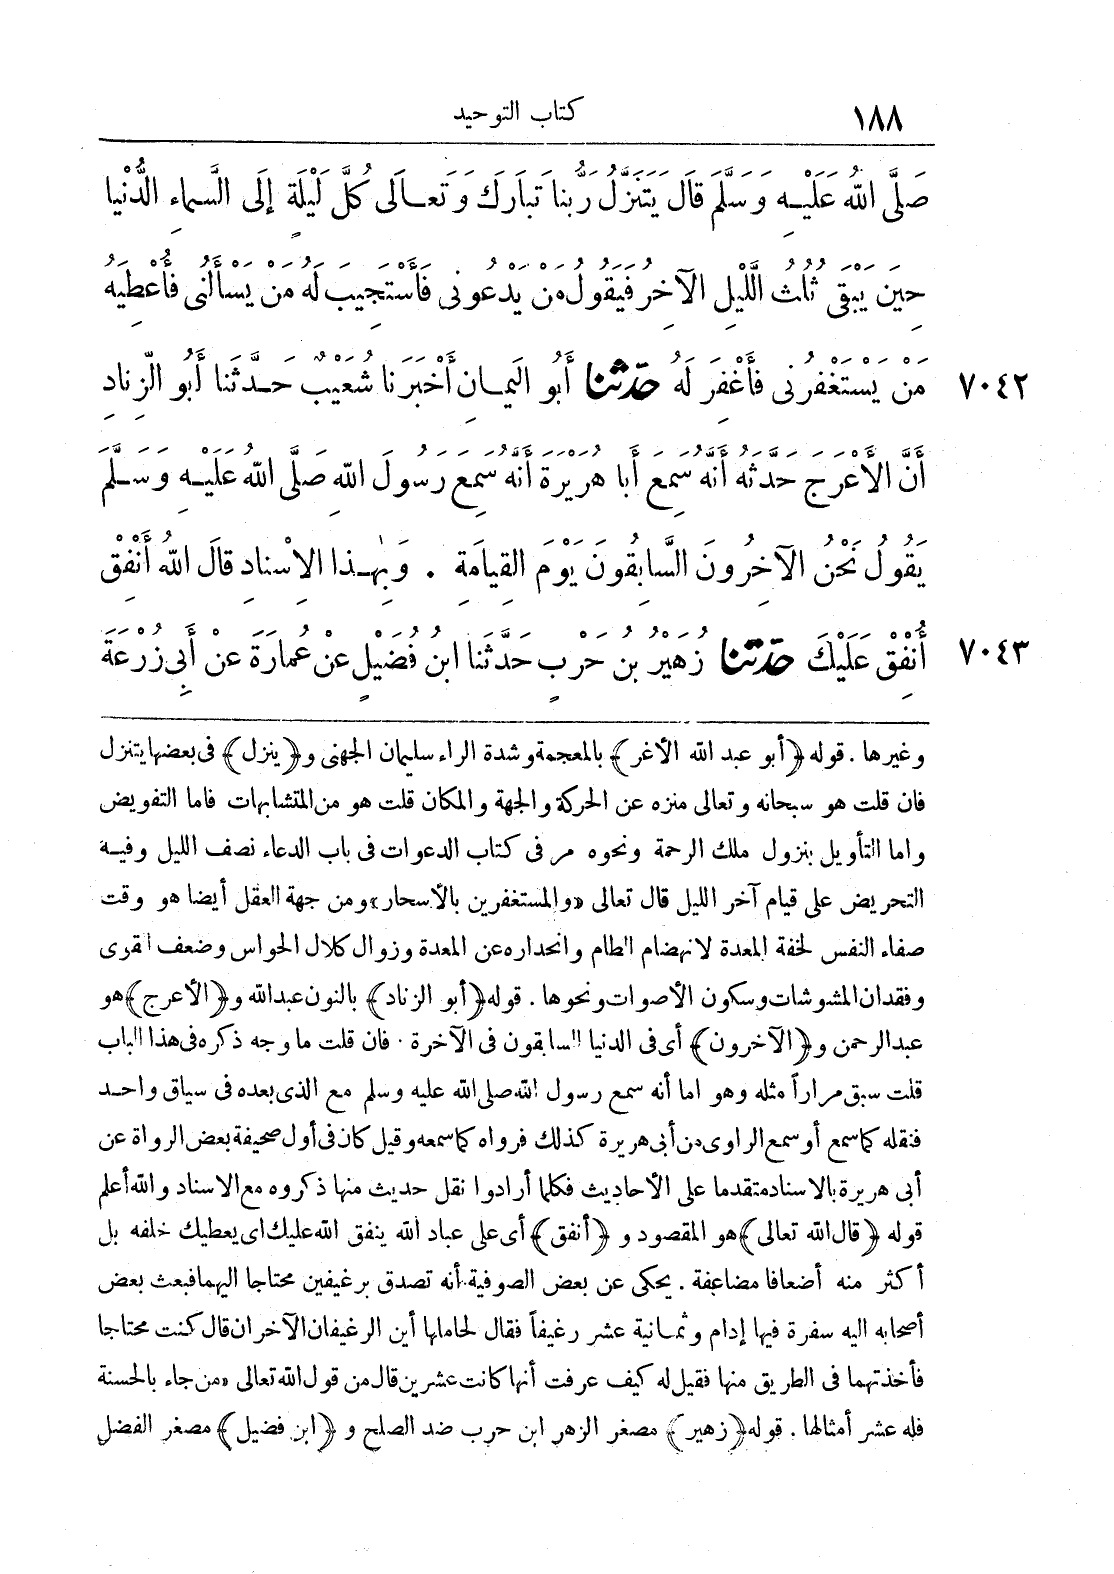 ١٨٨
كتاب التوحيد
صَلَّى اللهُ عَلَيْهِ وَسَلَّمَ قَالَ يَتَنَزَّلُ رَبُّنَا تَبَارَكَ وَتَعَالَى كُلَّ لَيْلَةٍ إِلَى السَّمَاءِ الدُّنْيَا
حِينَ يَبْقَى ثُلُثُ اللَّيْلِ الآخِرُ فَيَقُولُ مَنْ يَدْعُونِي فَأَسْتَجِيبَ لَهُ مَنْ يَسْأَلُنِي فَأُعْطِيَهُ
٧٠٤٢ مَنْ يَسْتَغْفِرُنِي فَأَغْفِرَ لَهُ حَدَّثَنَا أَبُو اليَمَانِ أَخْبَرَنَا شُعَيْبٌ حَدَّثَنَا أَبُو الزِّنَادِ
أَنَّ الأَعْرَجَ حَدَّثَهُ أَنَّهُ سَمِعَ أَبَا هُرَيْرَةَ أَنَّهُ سَمِعَ رَسُولَ اللهِ صَلَّى اللهُ عَلَيْهِ وَسَلَّمَ
يَقُولُ نَحْنُ الآخِرُونَ السَّابِقُونَ يَوْمَ القِيَامَةِ . وَبِهٰذَا الاِسْنَادِ قَالَ اللهُ أَنْفِقْ
٧٠٤٣ أُنْفِقْ عَلَيْكَ حَدَّثَنَا زُهَيْرُ بْنُ حَرْبٍ حَدَّثَنَا ابْنُ فُضَيْلٍ عَنْ عُمَارَةَ عَنْ أَبِي زُرْعَةَ
وغيرها . قوله ﴿أبو عبد الله الأغر﴾ بالمعجمة وشدة الراء سليمان الجهنى و﴿ينزل﴾ فى بعضها يتنزل
فان قلت هو سبحانه وتعالى منزه عن الحركة والجهة والمكان قلت هو من المتشابهات فاما التفويض
واما التأويل بنزول ملك الرحمة ونحوه مر فى كتاب الدعوات فى باب الدعاء نصف الليل وفيه
التحريض على قيام آخر الليل قال تعالى «والمستغفرين بالأسحار» ومن جهة العقل أيضا هو وقت
صفاء النفس لخفة المعدة لانهضام الطام وانحداره عن المعدة وزوال كلال الحواس وضعف القوى
وفقدان المشوشات وسكون الأصوات ونحوها . قوله ﴿أبو الزناد﴾ بالنون عبد الله و﴿الأعرج﴾ هو
عبدالرحمن و﴿الآخرون﴾ أى فى الدنيا السابقون فى الآخرة . فان قلت ما وجه ذكره فى هذا الباب
قلت سبق مراراً مثله وهو اما أنه سمع رسول الله صلى الله عليه وسلم مع الذى بعده فى سياق واحد
فنقله كما سمع أو سمع الراوى من أبى هريرة كذلك فرواه كما سمعه وقيل كان فى أول صحيفة بعض الرواة عن
أبى هريرة بالاسناد متقدما على الأحاديث فكلما أرادوا نقل حديث منها ذكروه مع الاسناد والله أعلم
قوله ﴿قال الله تعالى﴾ هو المقصود و ﴿أنفق﴾ أى على عباد الله ينفق الله عليك اى يعطيك خلفه بل
أكثر منه أضعافا مضاعفة . يحكى عن بعض الصوفية أنه تصدق برغيفين محتاجا اليهما فبعث بعض
أصحابه اليه سفرة فيها إدام وثمانية عشر رغيفاً فقال لحاملها أين الرغيفان الآخران قال كنت محتاجا
فأخذتهما فى الطريق منها فقيل له كيف عرفت أنها كانت عشرين قال من قول الله تعالى «من جاء بالحسنة
فله عشر أمثالها . قوله ﴿زهير﴾ مصغر الزهر ابن حرب ضد الصلح و ﴿ابن فضيل﴾ مصغر الفضل